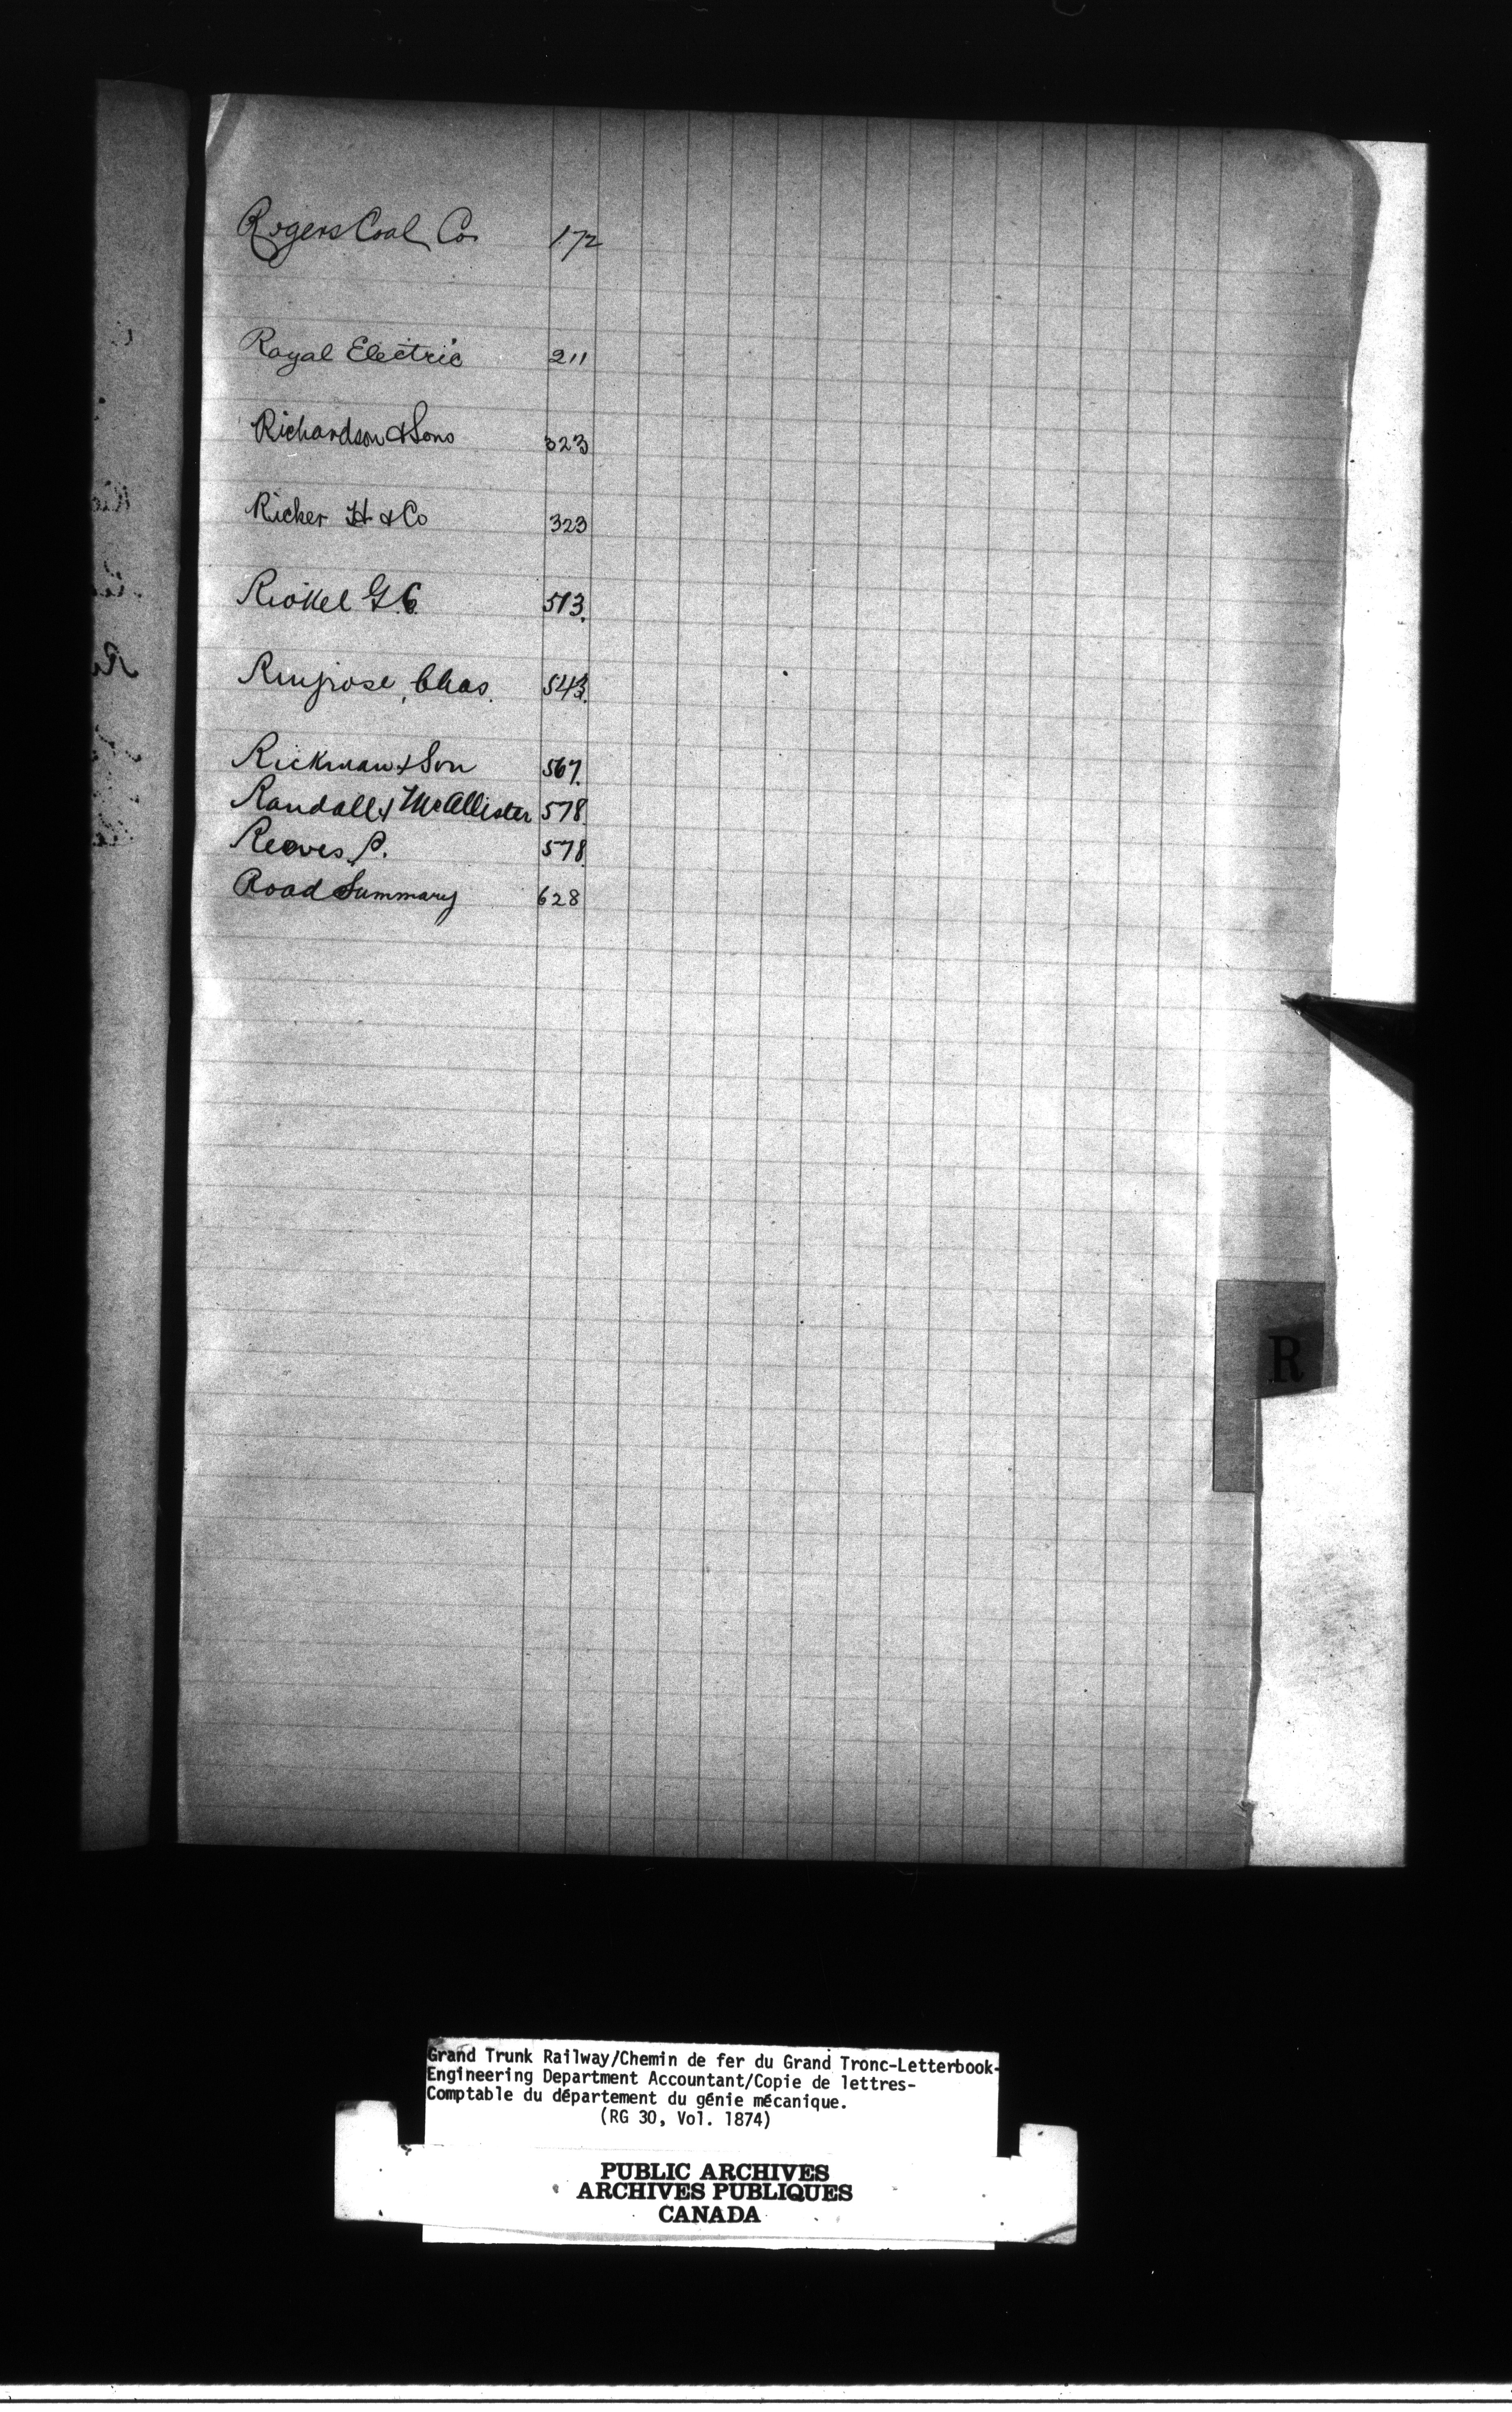 Rogers Coal Co. 172
Royal Electric 211
Richardson & Sons 323
Ricker H & Co 323
G.C. 513.
Chas. 543.
Rickman & Son 567.
Randall & McAllister 578.
Reeves P. 578.
Road Summary 628
R
Grand Trunk Railway/Chemin de fer du Grand Tronc-Letterbook-
Engineering Department Accountant/Copie de lettres-
Comptable du département du génie mécanique.
(RG 30, Vol. 1874)
PUBLIC ARCHIVES
ARCHIVES PUBLIQUES
CANADA